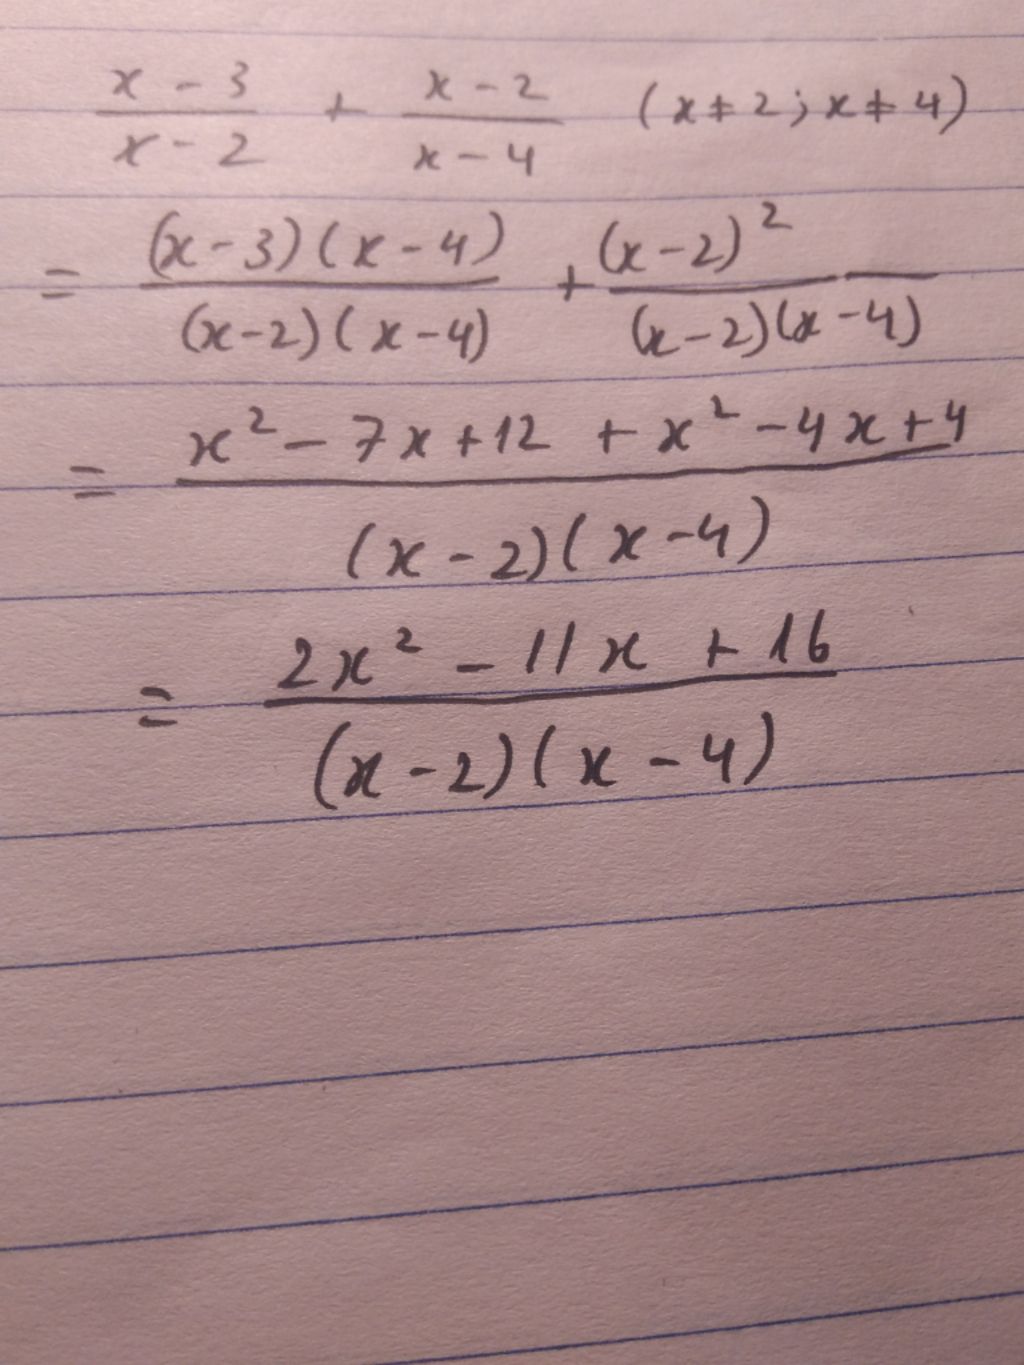 x - 3 / x - 2 + x - 2 / x - 4 (x ≠ 2; x ≠ 4)
= (x - 3)(x - 4) / (x - 2)(x - 4) + (x - 2)² / (x - 2)(x - 4)
= x² - 7x + 12 + x² - 4x + 4 / (x - 2)(x - 4)
= 2x² - 11x + 16 / (x - 2)(x - 4)